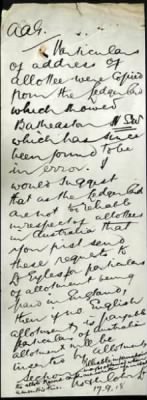 A.A.G.
Particulars
of address of
allottee were copied
from the Ledger Card
which showed
Batheaston N.S.W
which has since
been found to be
in error. I
would suggest
that as the Ledger Cards
are not reliable
in respect of allottees
in Australia that
you first send
these requests to
Lt Eyles for particulars
of allotment being
paid in England,
then if no English
allotment is payable
particulars of Australian
allotment will be
inserted by allotments
Section
17.9.18